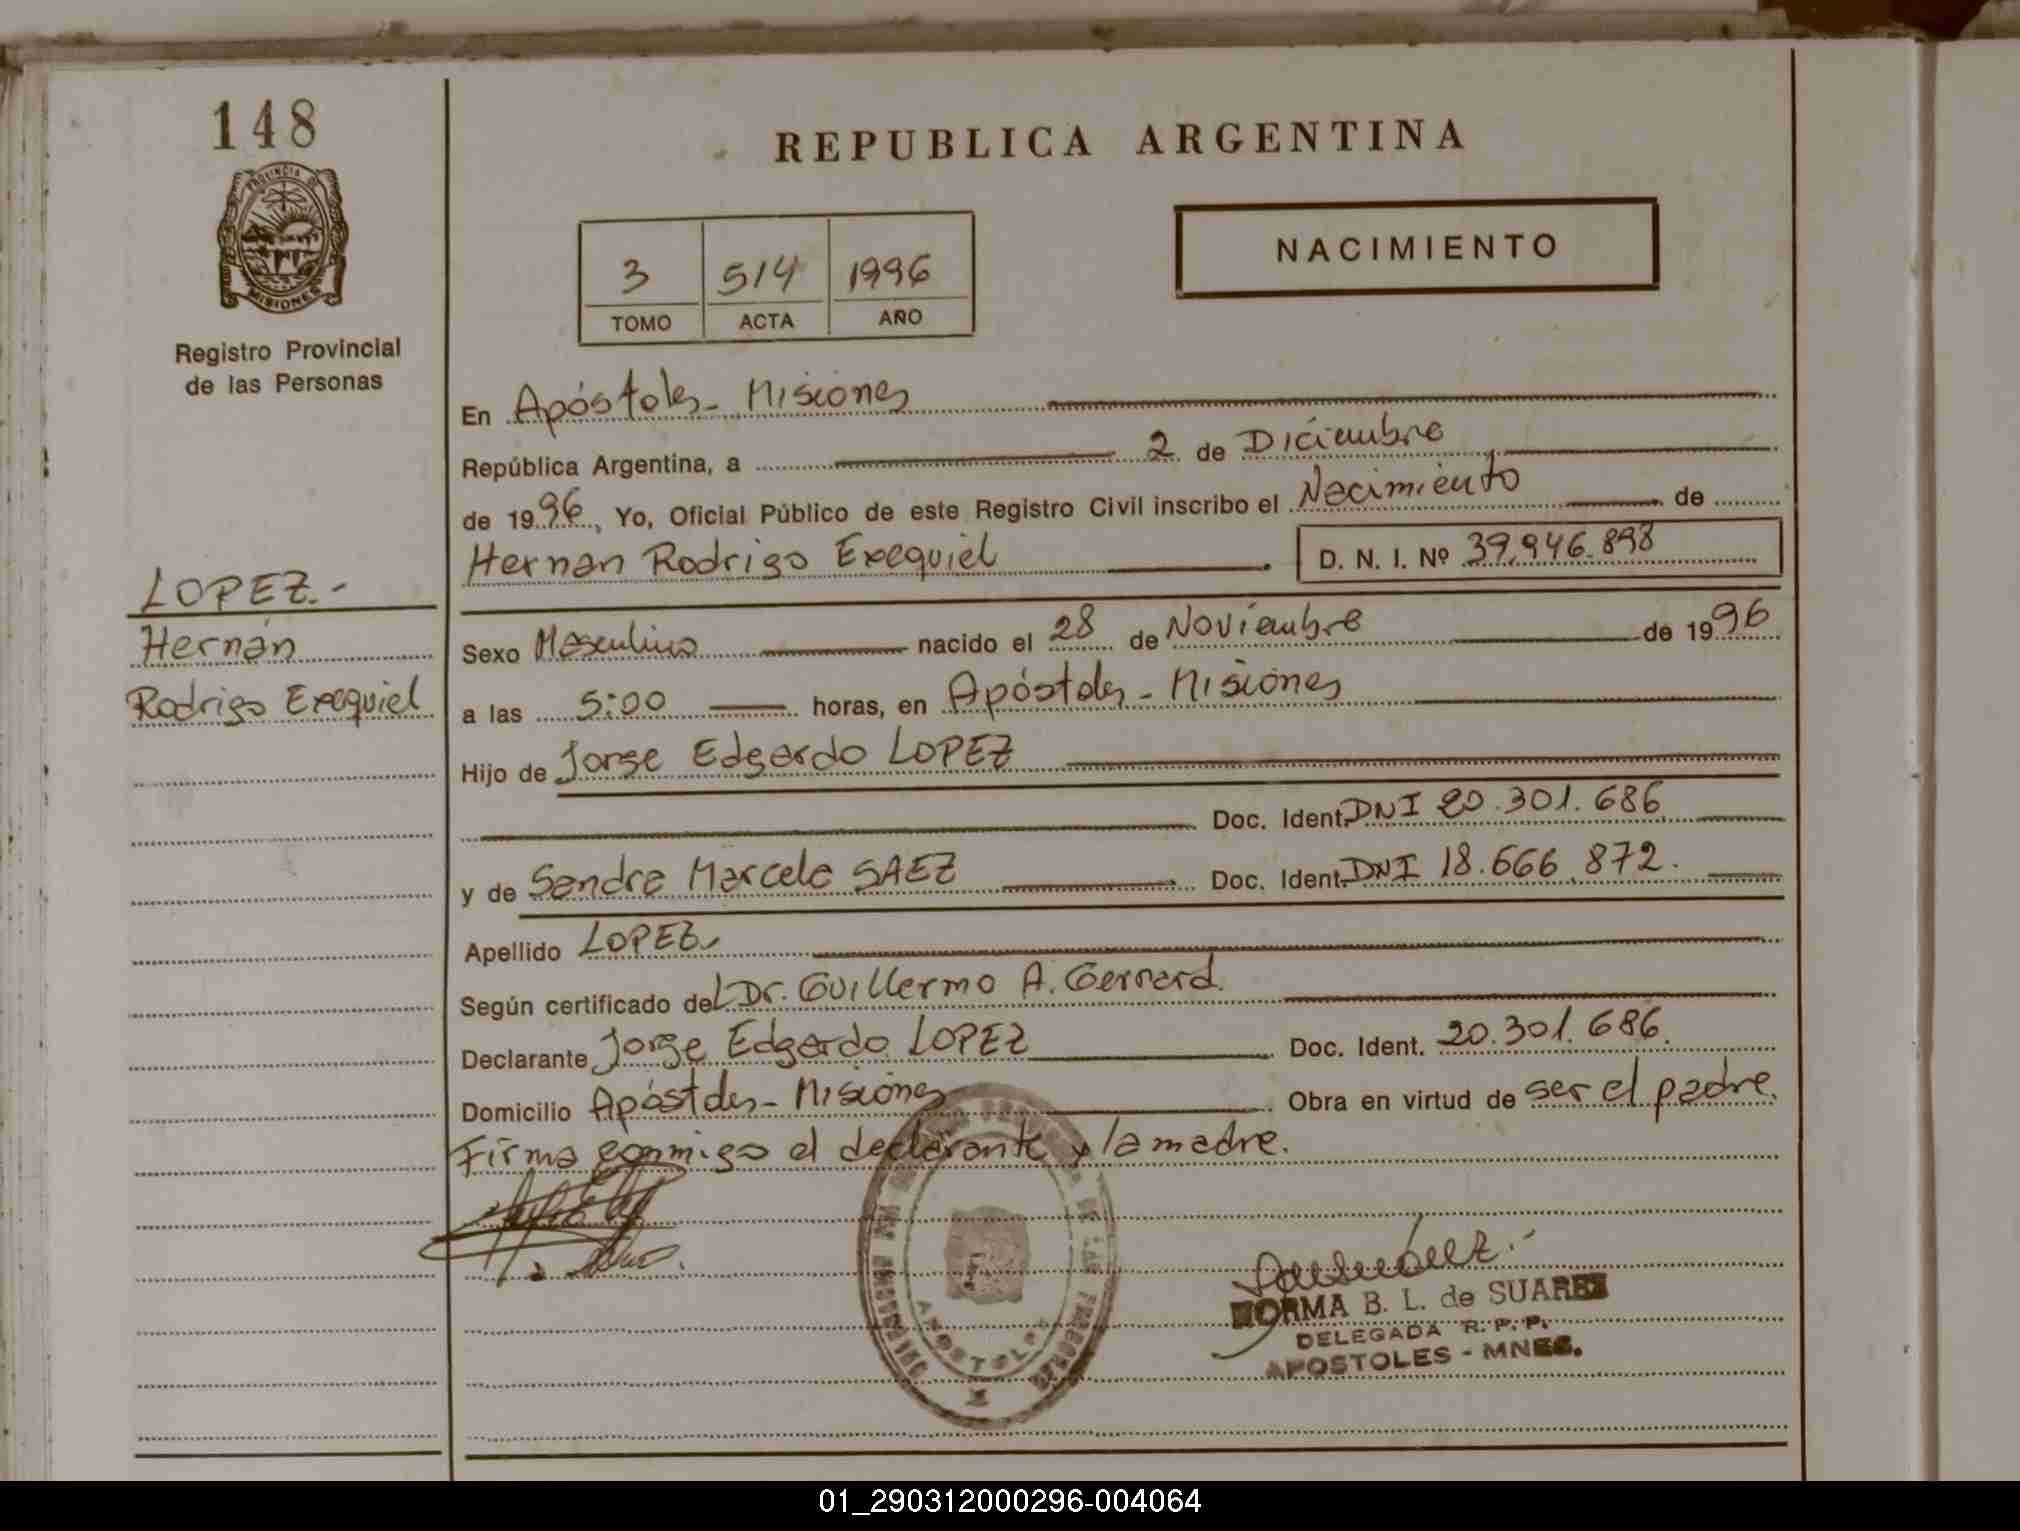 148
PROVINCIA D
MISIONES
Registro Provincial
de las Personas
REPUBLICA ARGENTINA
3 514 1996
TOMO ACTA AÑO
NACIMIENTO
En Apóstoles - Misiones
República Argentina, a 2 de Diciembre
de 1996, Yo, Oficial Público de este Registro Civil inscribo el Nacimiento de
Hernan Rodrigo Exequiel D. N. I. Nº 39.946.898
LOPEZ.-
Hernán
Rodrigo Exequiel
Sexo Masculino nacido el 28 de Noviembre de 1996
a las 5:00 horas, en Apóstoles - Misiones
Hijo de Jorge Edgardo LOPEZ
Doc. Ident. DNI 20.301.686
y de Sandra Marcela SAEZ Doc. Ident. DNI 18.666.872.
Apellido LOPEZ.
Según certificado del Dr. Guillermo A. Gerrard.
Declarante Jorge Edgardo LOPEZ Doc. Ident. 20.301.686.
Domicilio Apóstoles - Misiones Obra en virtud de ser el padre.
Firma conmigo el declarante y la madre.
NORMA B. L. de SUAREZ
DELEGADA R. P. P.
APOSTOLES - MNES.
01_290312000296-004064